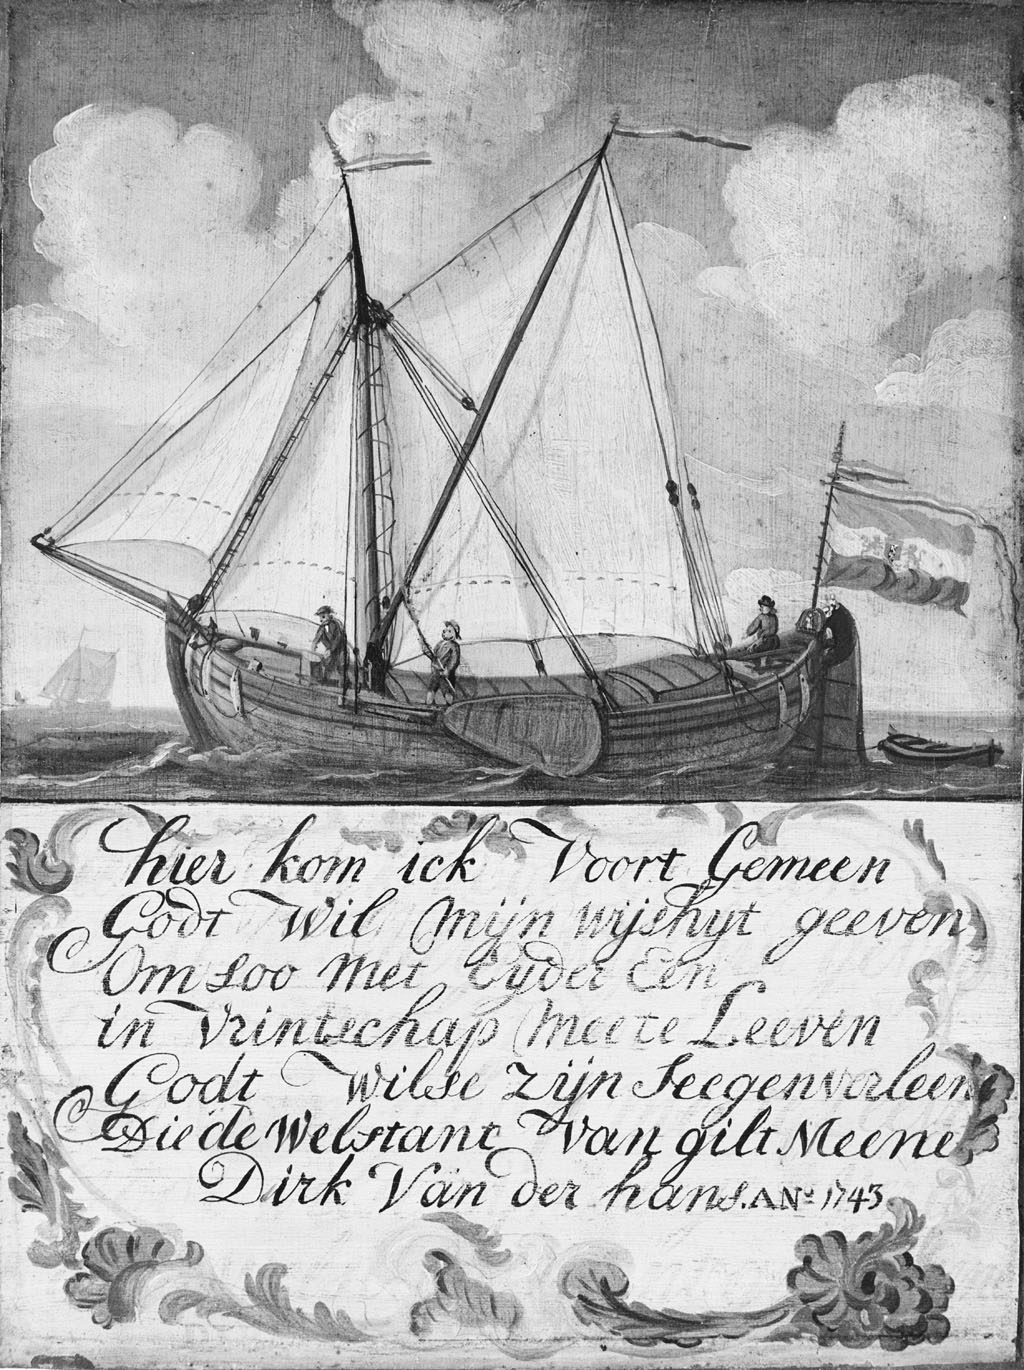 hier kom ick Voort Gemeen
Godt Wil Mijn wijshyt geeven
Om Soo Met Eyder Een
in Vrintschap Meete Leeven
Godt Wilse zijn Seegen verleene
Die de Welstant Van gilt Meene
Dirk Van der hans. ANo 1743